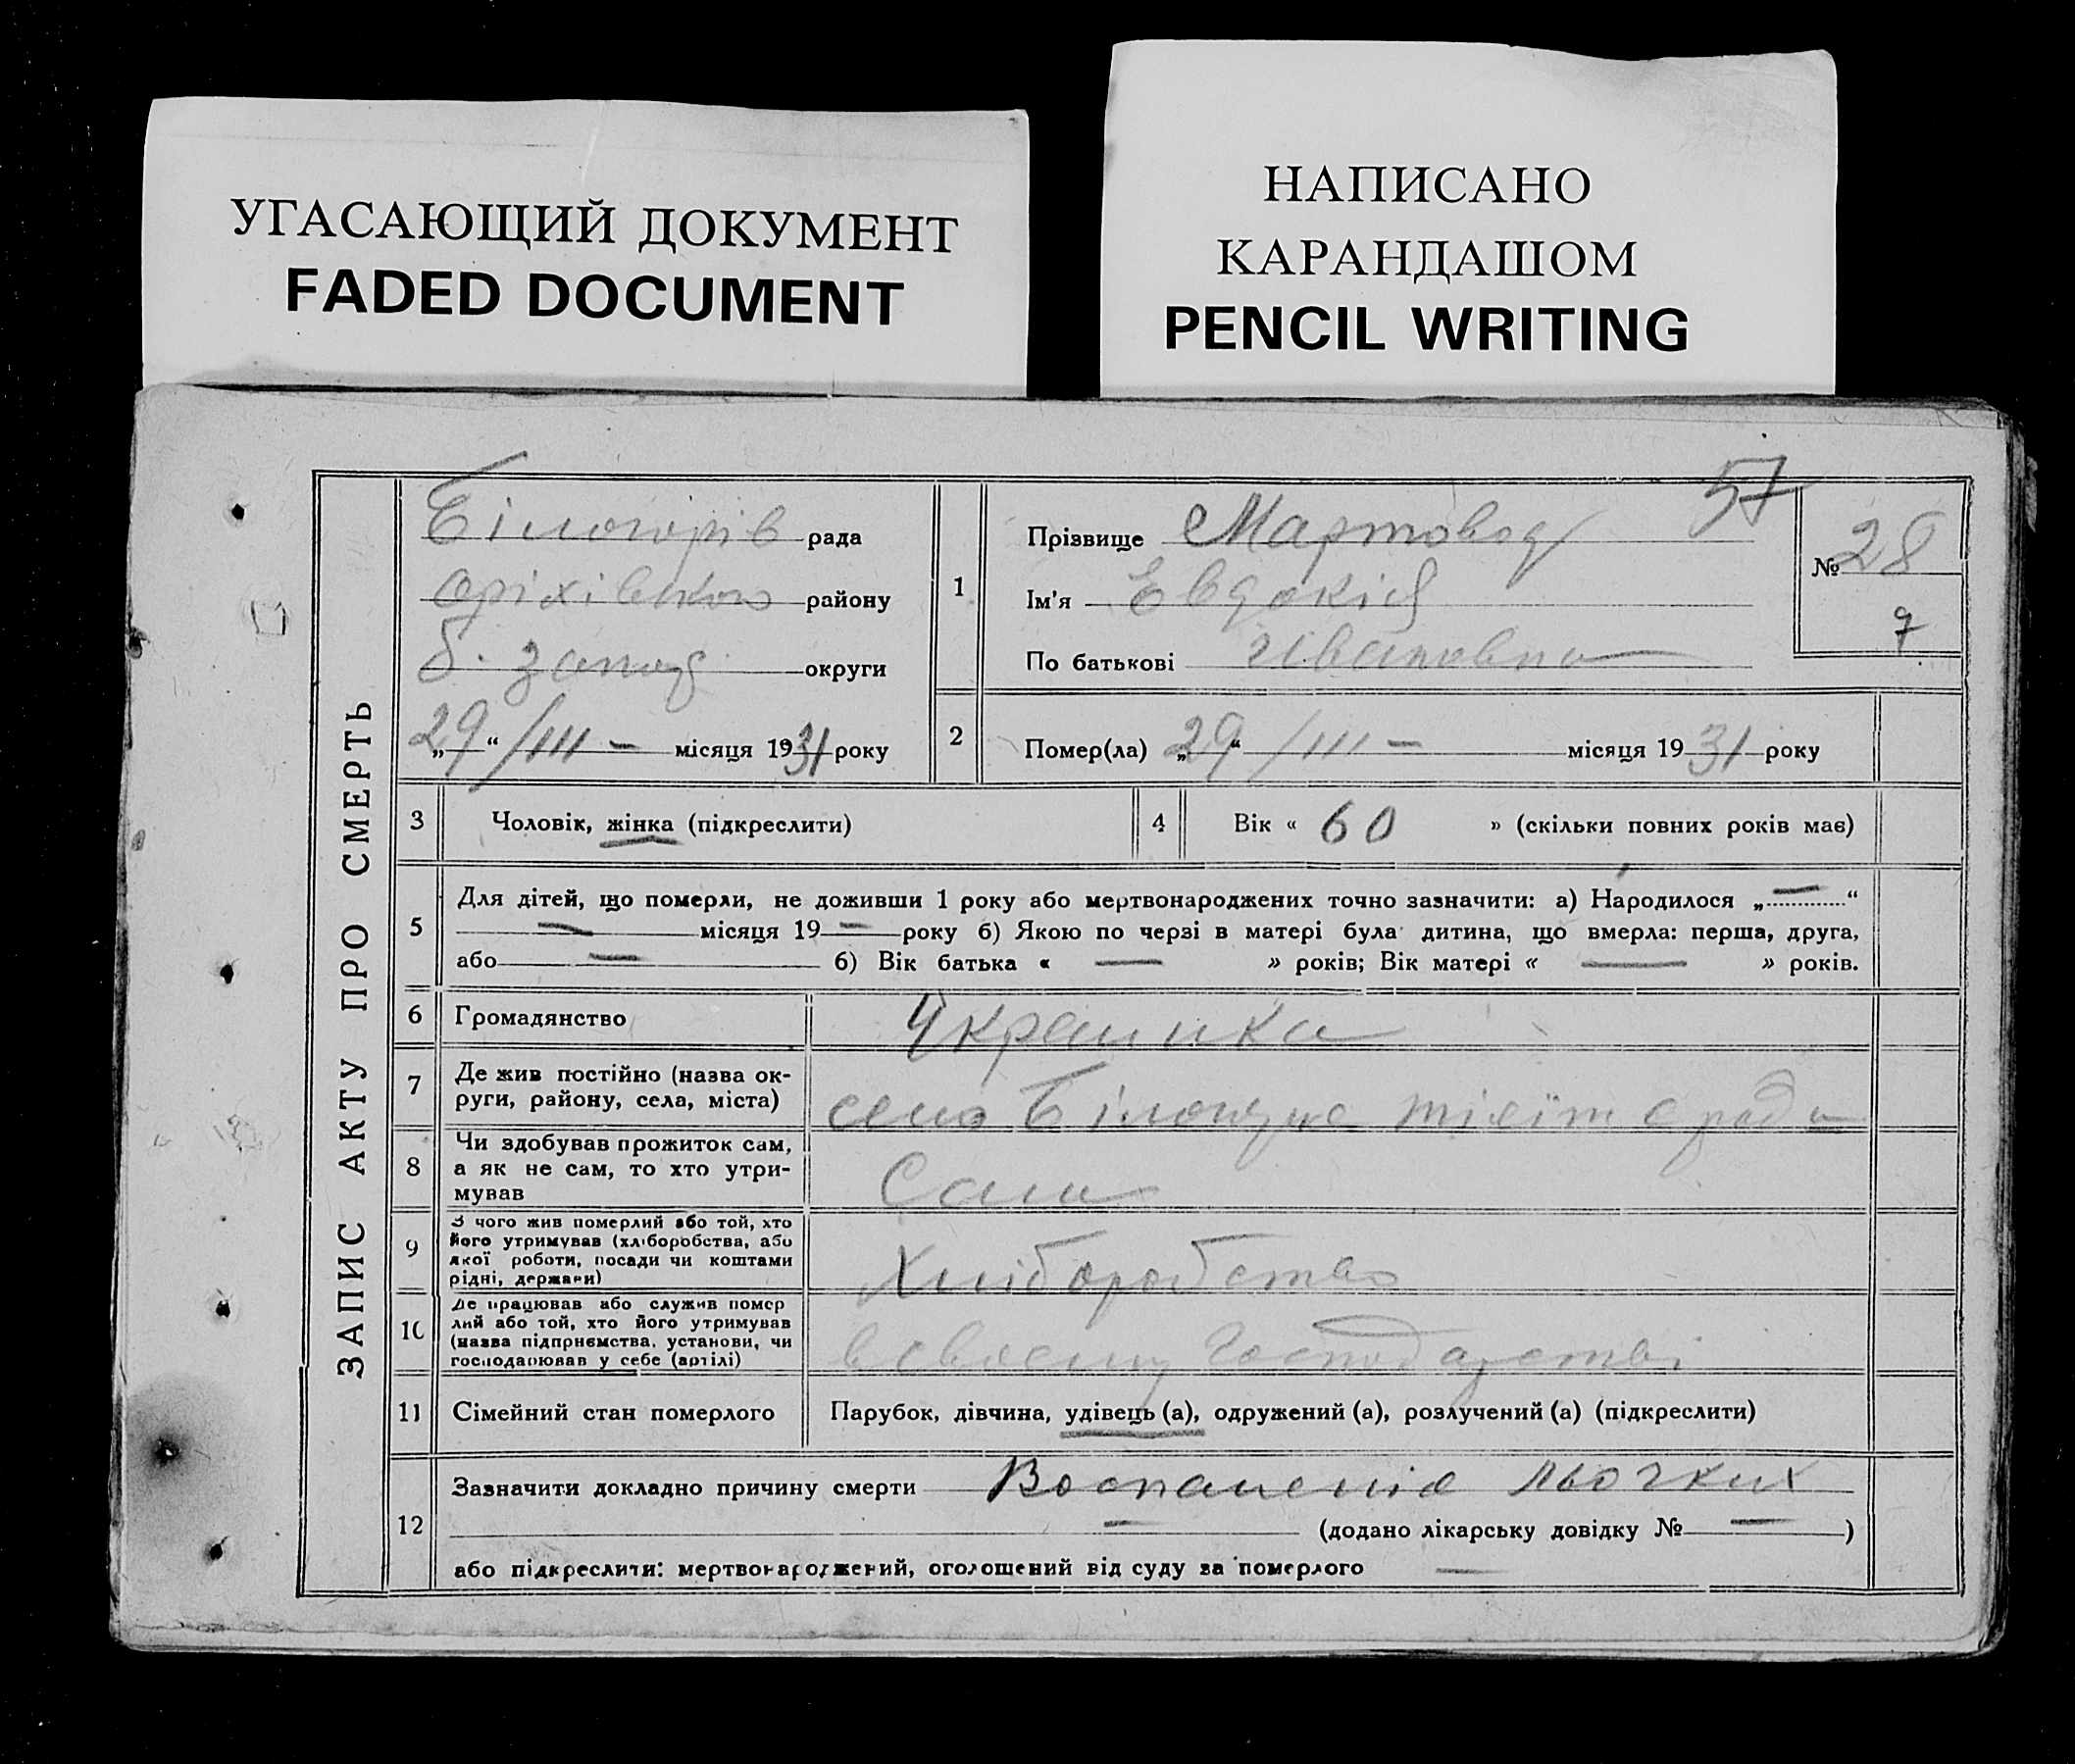 УГАСАЮЩИЙ ДОКУМЕНТ
FADED DOCUMENT
НАПИСАНО
КАРАНДАШОМ
PENCIL WRITING
ЗАПИС АКТУ ПРО СМЕРТЬ
57
Білогорів рада
оріхівського району
б. запор. округи
„29“ /III – місяця 1931 року
1
Прізвище Мартовод
Ім'я Евдокія
По батькові Івановна
№ 28
7
2
Помер(ла) „29“ /III – місяця 1931 року
3 Чоловік, жінка (підкреслити)
4 Вік « 60 » (скільки повних років має)
5 Для дітей, що померли, не доживши 1 року або мертвонароджених точно зазначити: а) Народилося „—“
— місяця 19— року б) Якою по черзі в матері була дитина, що вмерла: перша, друга,
або — б) Вік батька « — » років; Вік матері « — » років.
6 Громадянство Украинка
7 Де жив постійно (назва ок-
руги, району, села, міста) село тієїж ради
8 Чи здобував прожиток сам,
а як не сам, то хто утри-
мував Сама
9 З чого жив померлий або той, хто
його утримував (хліборобства, або
якої роботи, посади чи коштами
рідні, держави) Хліборобство
10 Де працював або служив помер
лий або той, хто його утримував
(назва підприємства, установи, чи
господарював у себе (артілі) в своєму господарстві
11 Сімейний стан померлого Парубок, дівчина, удівець (а), одружений (а), розлучений (а) (підкреслити)
12 Зазначити докладно причину смерти Воспаленіе льогких
— (додано лікарську довідку № —)
або підкреслити: мертвонароджений, оголошений від суду за померлого —